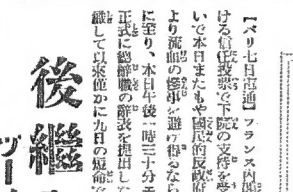 【パリ七日電通】フランス内
ける信任投票で下院の支持を受
いで本日またもや國民的反政府
より流血の慘事を避け得るなら
に至り、本日午後一時三十分
正式に總辭職の辭表を提出した
織して以來僅かに九日の短命で
後繼